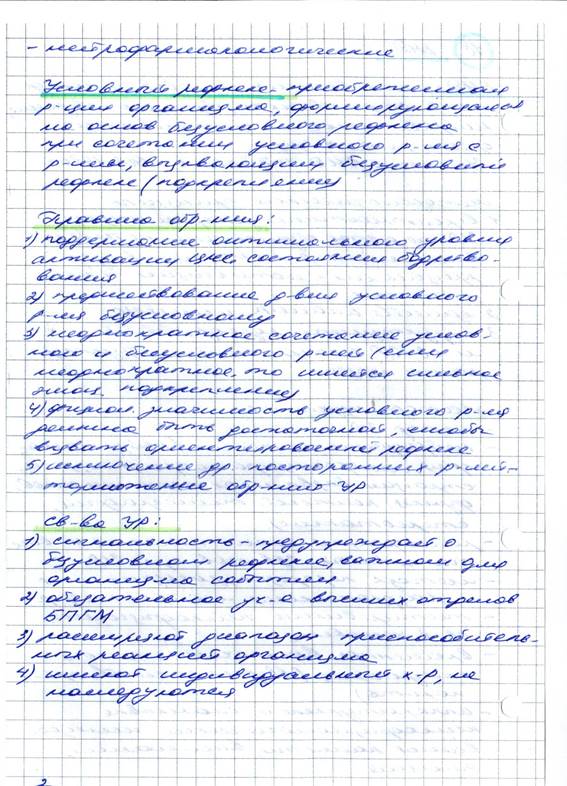 - нейрофармакологические
Условный рефлекс - приобретенная
р-ция организма, формирующаяся
на основ. безусловного рефлекса
при сочетании условного р-ля с
р-лем, вызывающим безусловный
рефлекс (подкрепление)
Правила обр-ния:
1) поддержание оптимального уровня
активации ЦНС, состояния бодрство-
вания
2) предшествование д-вия условного
р-ля безусловному
3) неоднократное сочетание услов-
ного и безусловного р-лей (если
неоднократное, то имеется сильное
эмоц. подкрепление)
4) физиол. значимость условного р-ля
должна быть достаточной, чтобы
вызвать ориентировочный рефлекс
5) исключение др. посторонних р-лей -
торможение обр-ния УР
Св-ва УР:
1) сигнальность - предупреждает о
безусловном рефлексе, важном для
организма событии
2) обязательное уч-е высших отделов
БПГМ
3) расширяют диапазон приспособитель-
ных реакций организма
4) имеют индивидуальный х-р, не
наследуются
2